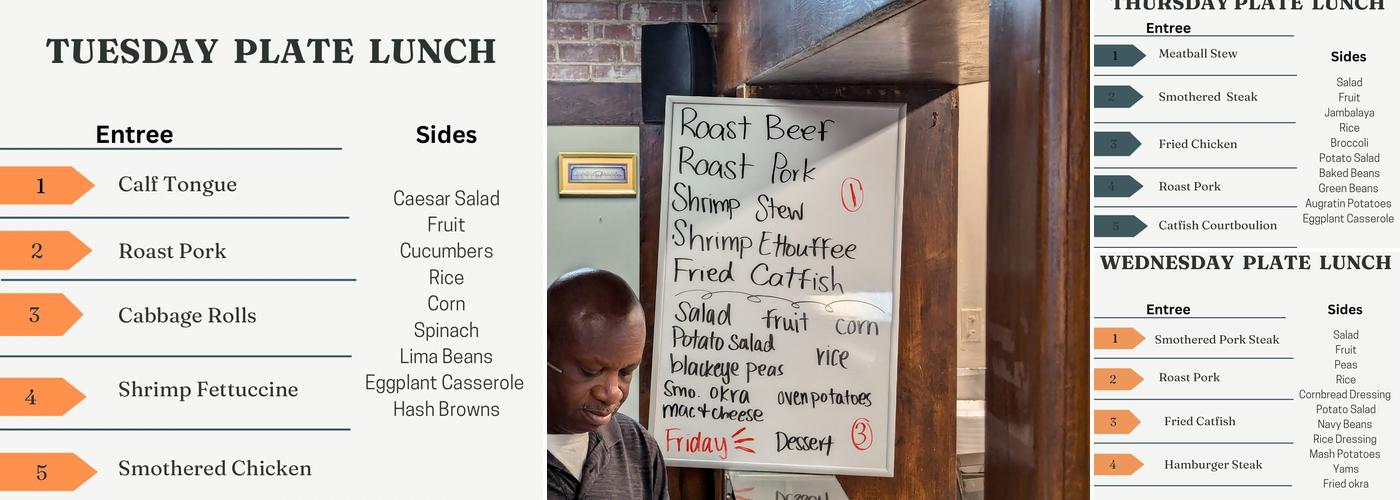 TUESDAY PLATE LUNCH
Entree
1 Calf Tongue
2 Roast Pork
3 Cabbage Rolls
4 Shrimp Fettuccine
5 Smothered Chicken
Sides
Caesar Salad
Fruit
Cucumbers
Rice
Corn
Spinach
Lima Beans
Eggplant Casserole
Hash Browns
Roast Beef
Roast Pork
Shrimp Stew
1
Shrimp Etouffee
Fried Catfish
Salad fruit corn
Potato Salad rice
blackeye peas
smo. okra oven potatoes
mac + cheese
Friday Dessert 3
THURSDAY PLATE LUNCH
Entree
1 Meatball Stew
2 Smothered Steak
3 Fried Chicken
4 Roast Pork
5 Catfish Courtboulion
Sides
Salad
Fruit
Jambalaya
Rice
Broccoli
Potato Salad
Baked Beans
Green Beans
Augratin Potatoes
Eggplant Casserole
WEDNESDAY PLATE LUNCH
Entree
1 Smothered Pork Steak
2 Roast Pork
3 Fried Catfish
4 Hamburger Steak
Sides
Salad
Fruit
Peas
Rice
Cornbread Dressing
Potato Salad
Navy Beans
Rice Dressing
Mash Potatoes
Yams
Fried okra